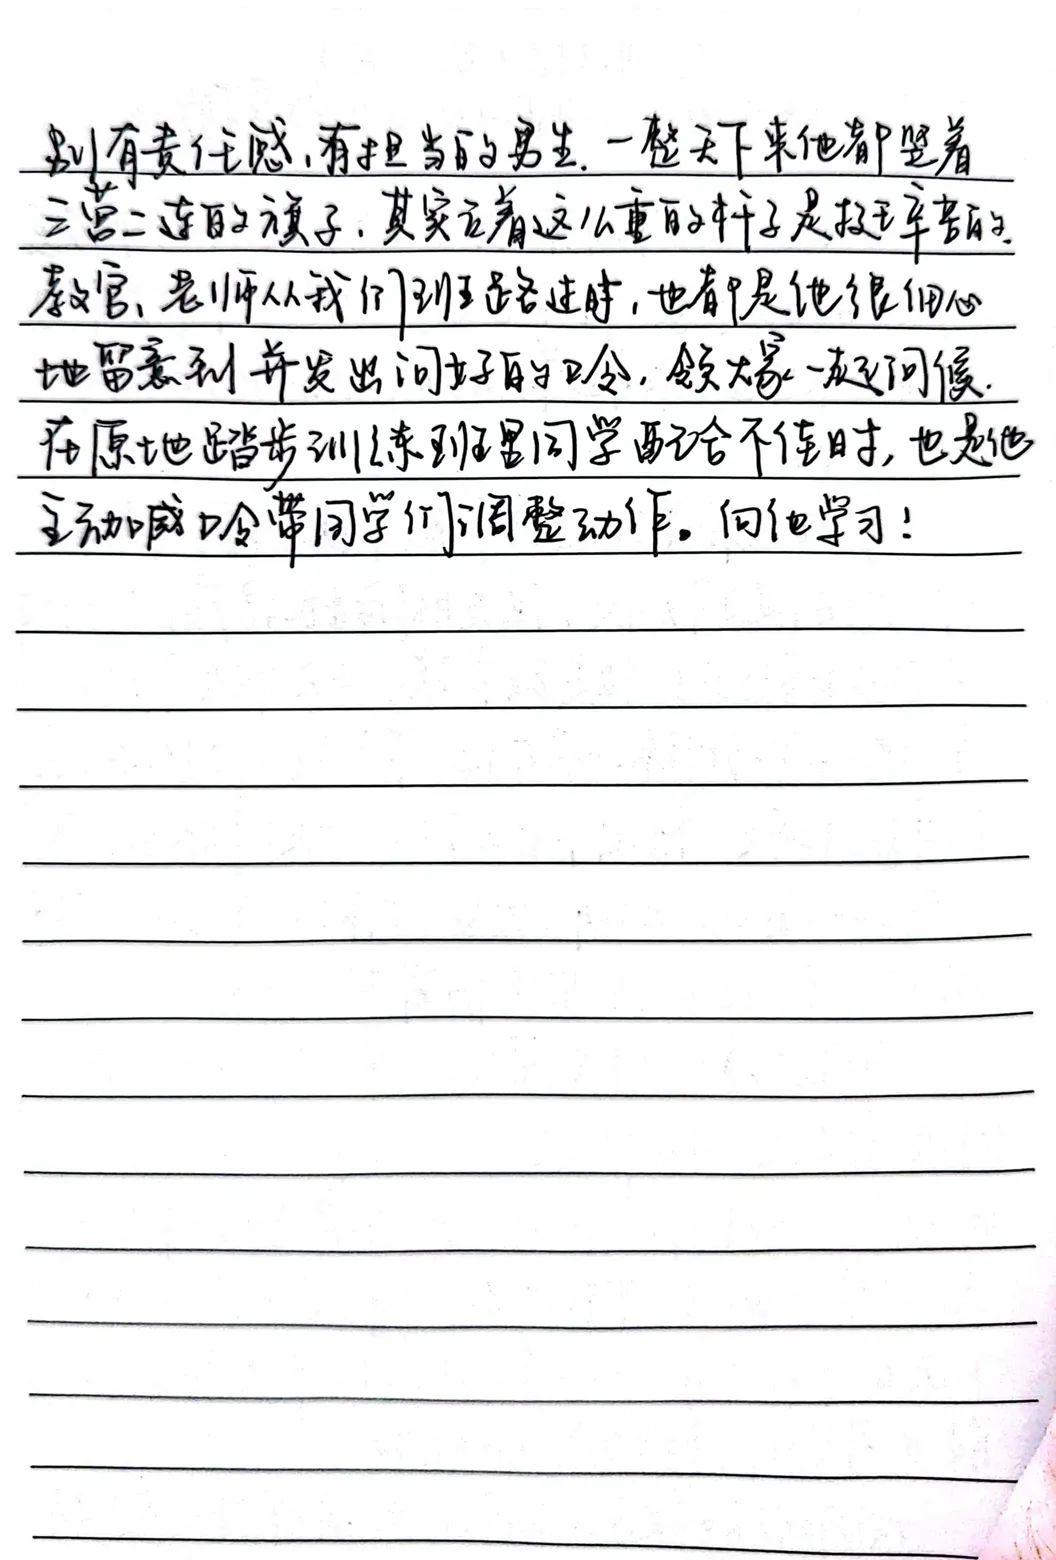 别有责任感、有担当的男生.一整天下来他都竖着
三营二连的旗子.其实立着这么重的杆子是挺辛苦的.
教官、老师从我们班路过时,也都是他很细心
地留意到并发出问好的口令,领大家一起问候.
在原地踏步训练班里同学配合不佳时,也是他
主动喊口令带同学们调整动作。向他学习!